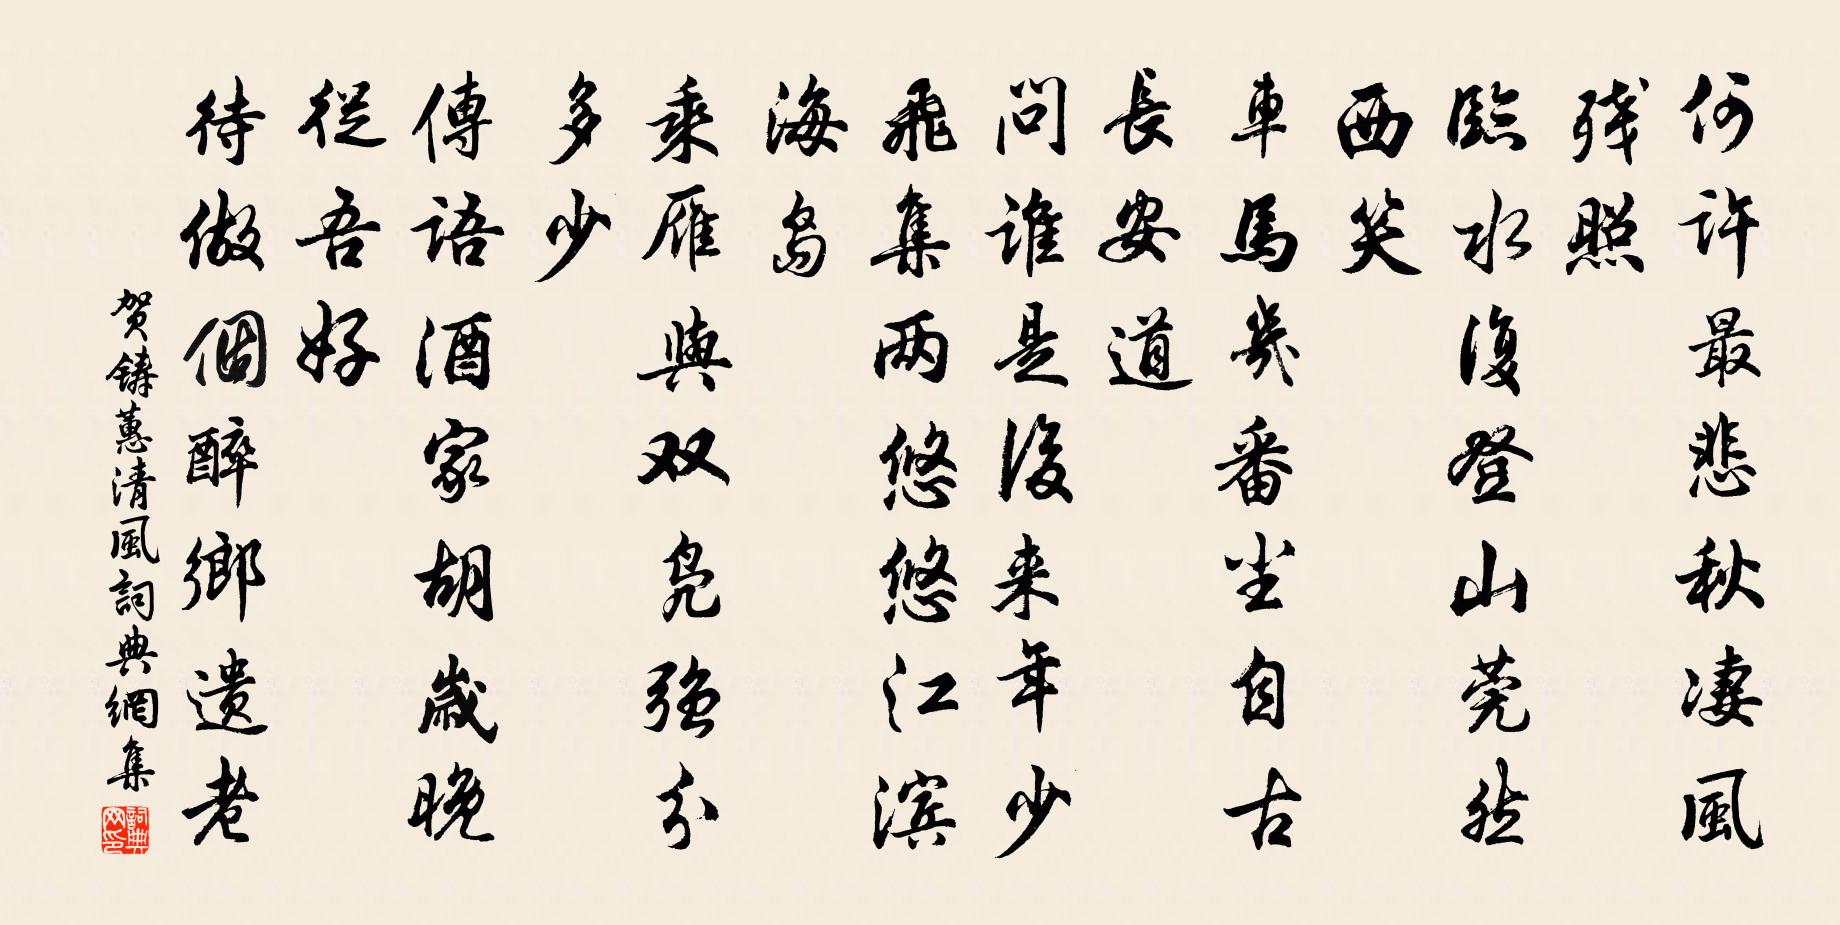 何许最悲秋凄風
残照
臨水復登山莞然
西笑
車馬幾番尘自古
長安道
問谁是後来年少
飛集两悠悠江滨
海岛
乘雁與双凫強分
多少
傳语酒家胡歲晚
從吾好
待做個醉鄉遗老
贺鑄蕙清風詞典網集
詞典网印